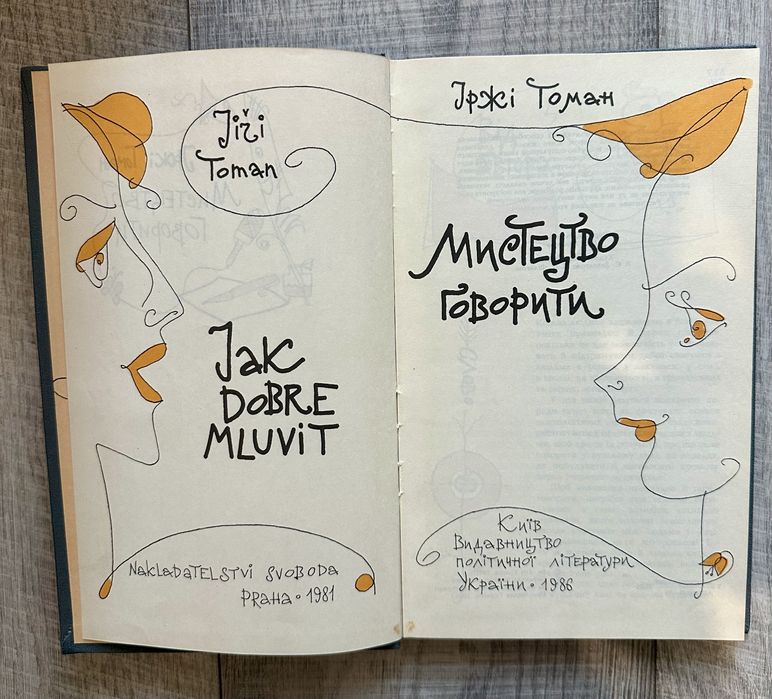 Jiří
Toman
Jak
DOBRE
MLUViT
NAKLADATELSTVÍ SVOBODA
PRAHA • 1981
Іржі Томан
Мистецтво
говорити
Київ
Видавництво
політичної літератури
України • 1986